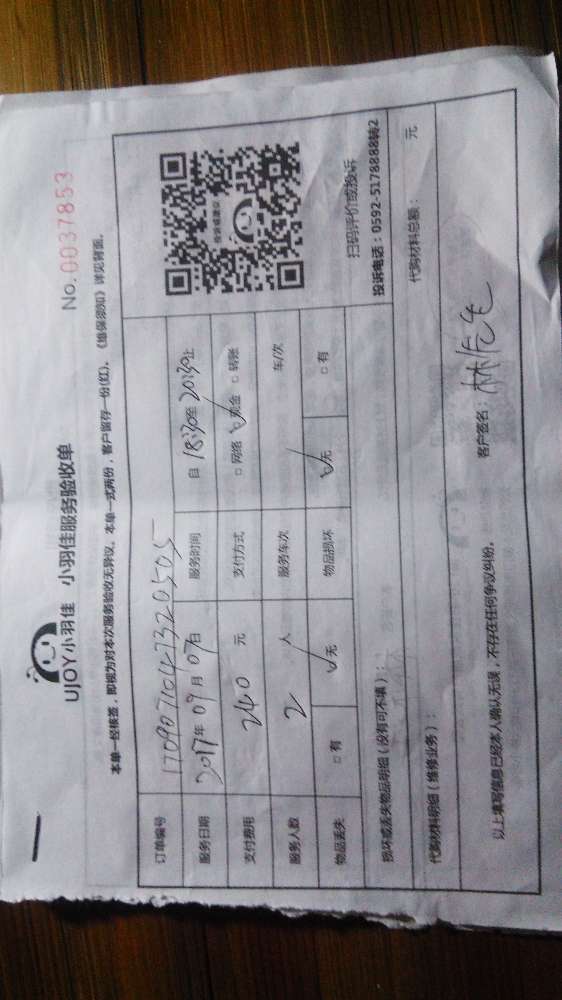 UJOY小羽佳 小羽佳服务验收单
No.0037853
本单一经核签，即视为对本次服务验收无异议。本单一式两份，客户留存一份(红)。《维保须知》详见背面。
订单编号
服务日期 2017年 09月 07日 服务时间 自 18:30至 20:30止
支付费用 240 元 支付方式 □ 网络 ☑ 现金 □ 转账
服务人数 2 人 服务车次 车/次
物品丢失 □ 有 ☑ 无 物品损坏 ☑ 无 □ 有
投诉或建议
扫码评价或投诉
投诉电话：0592-5178888转2
损坏或丢失物品明细（没有可不填）：
代购材料明细（维修业务）： 代购材料总额： 元
以上填写信息已经本人确认无误，不存在任何争议纠纷。 客户签名： 林先生